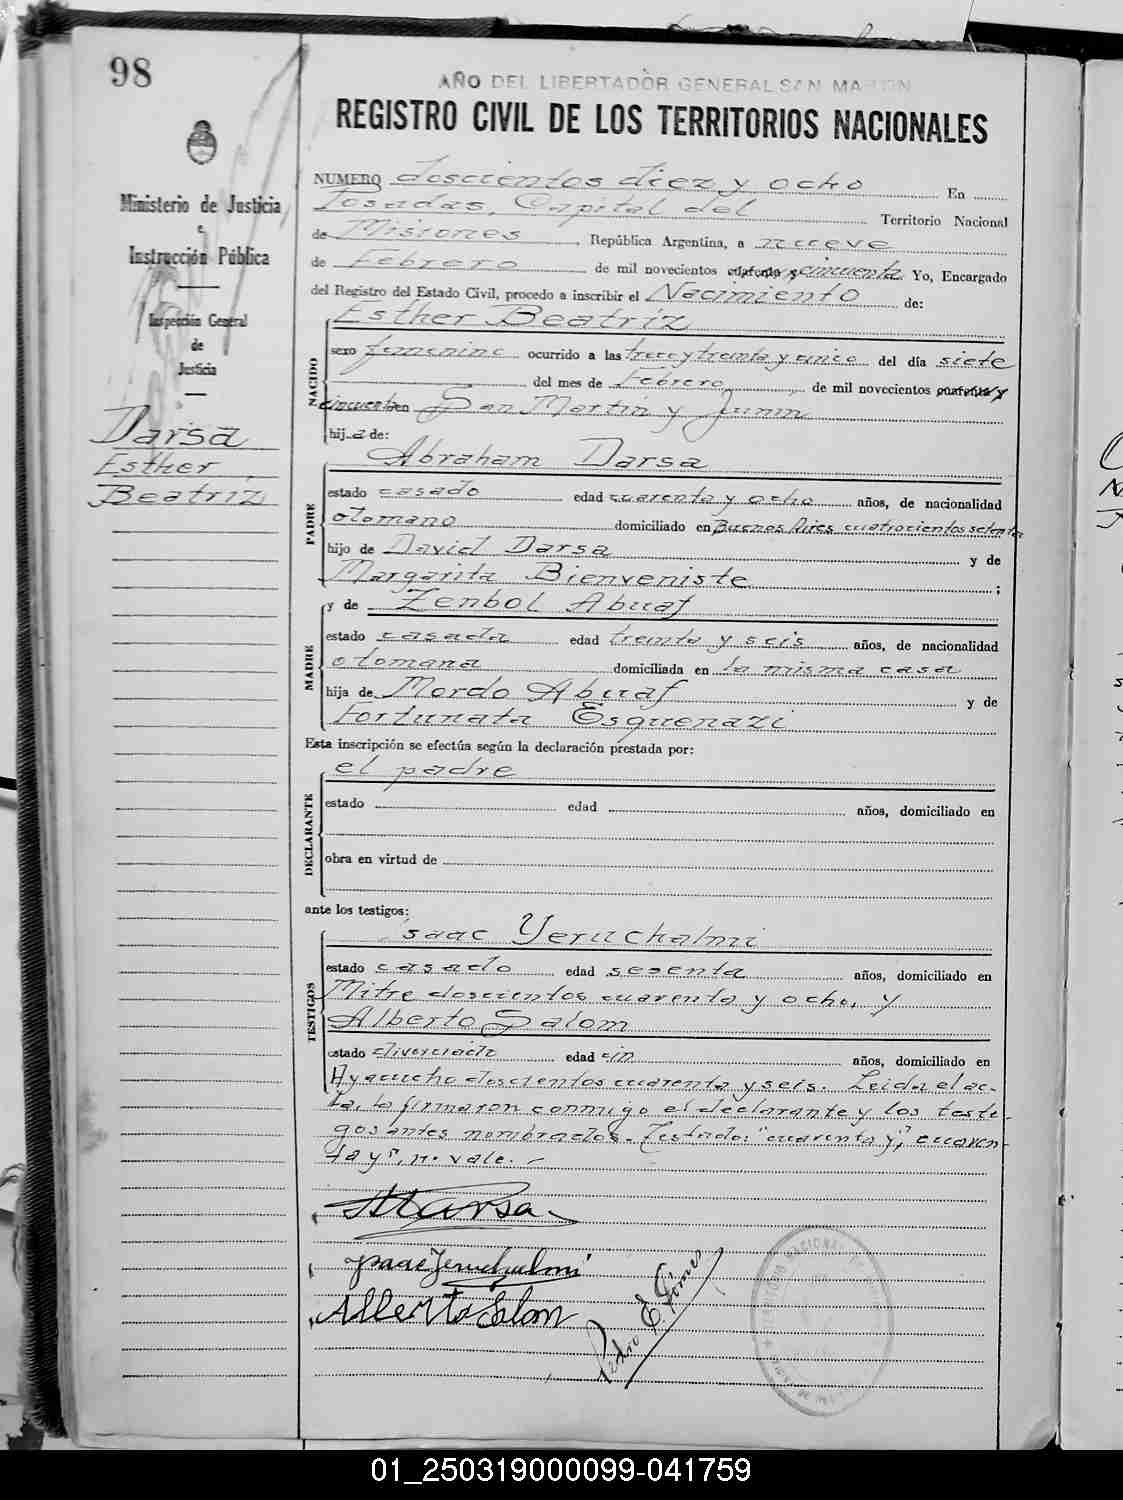 98
AÑO DEL LIBERTADOR GENERAL SAN MARTIN
REGISTRO CIVIL DE LOS TERRITORIOS NACIONALES
Ministerio de Justicia
e
Instrucción Pública
Inspección General
de
Justicia
Darsa
Esther
Beatriz
NUMERO doscientos diez y ocho En
Posadas, Capital del Territorio Nacional
de Misiones, República Argentina, a nueve
de Febrero de mil novecientos cuarenta y cincuenta Yo, Encargado
del Registro del Estado Civil, procedo a inscribir el Nacimiento de:
NACIDO
Esther Beatriz
sexo femenino ocurrido a las trece y treinta y cinco del día siete
del mes de Febrero de mil novecientos cuarenta y
cincuenta en San Martín y Junín
hija de:
PADRE
Abraham Darsa
estado casado edad cuarenta y ocho años, de nacionalidad
otomano domiciliado en Buenos Aires cuatrocientos setenta
hijo de David Darsa y de
Margarita Bienveniste ;
MADRE
y de Zenbol Abuaf
estado casada edad treinta y seis años, de nacionalidad
otomana domiciliada en la misma casa
hija de Mordo Abuaf y de
Fortunata Esquenazi
Esta inscripción se efectúa según la declaración prestada por:
DECLARANTE
el padre
estado edad años, domiciliado en
obra en virtud de
ante los testigos:
TESTIGOS
Isaac Yeruchalmi
estado casado edad sesenta años, domiciliado en
Mitre doscientos cuarenta y ocho, y
Alberto Salom
estado edad años, domiciliado en
Ayacucho doscientos cuarenta y seis. Leida el ac-
ta, la firmaron conmigo el declarante y los testi-
gos antes nombrados. Testado: "cuarenta y", "cuaren-
ta y", no vale. -
Darsa
Isaac Jeruchalmi
Alberto Salom
Pedro E. Gimé
01_250319000099-041759